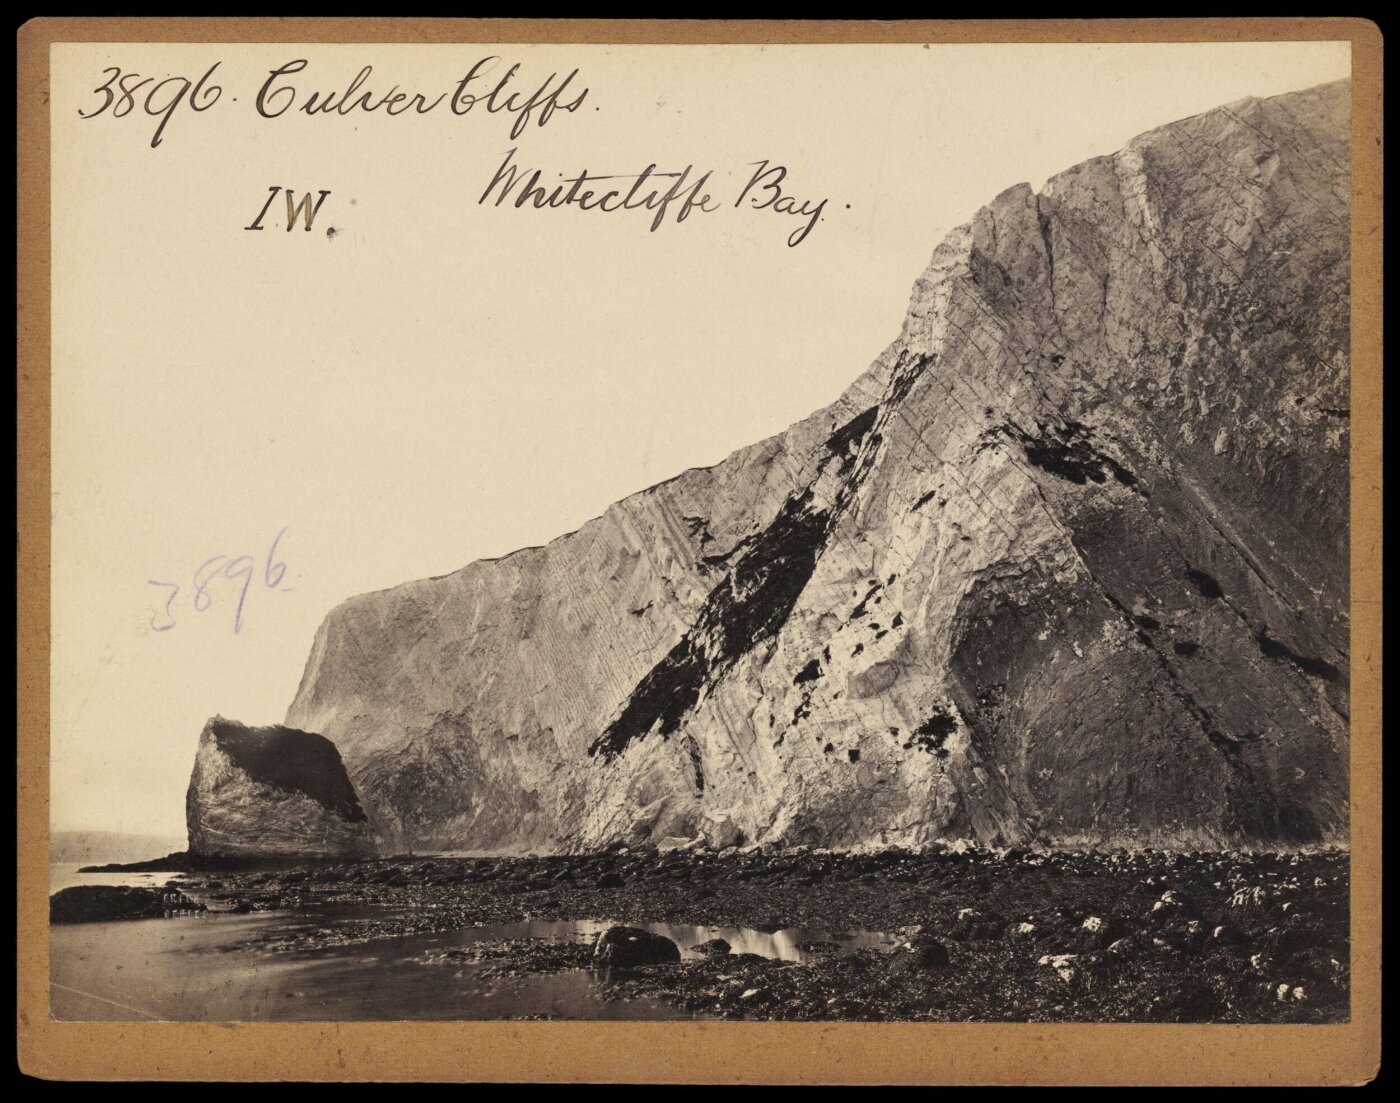 3896. Culver Cliffs.
Whitecliffe Bay.
I.W.
3896.
FRITH'S
SERIES